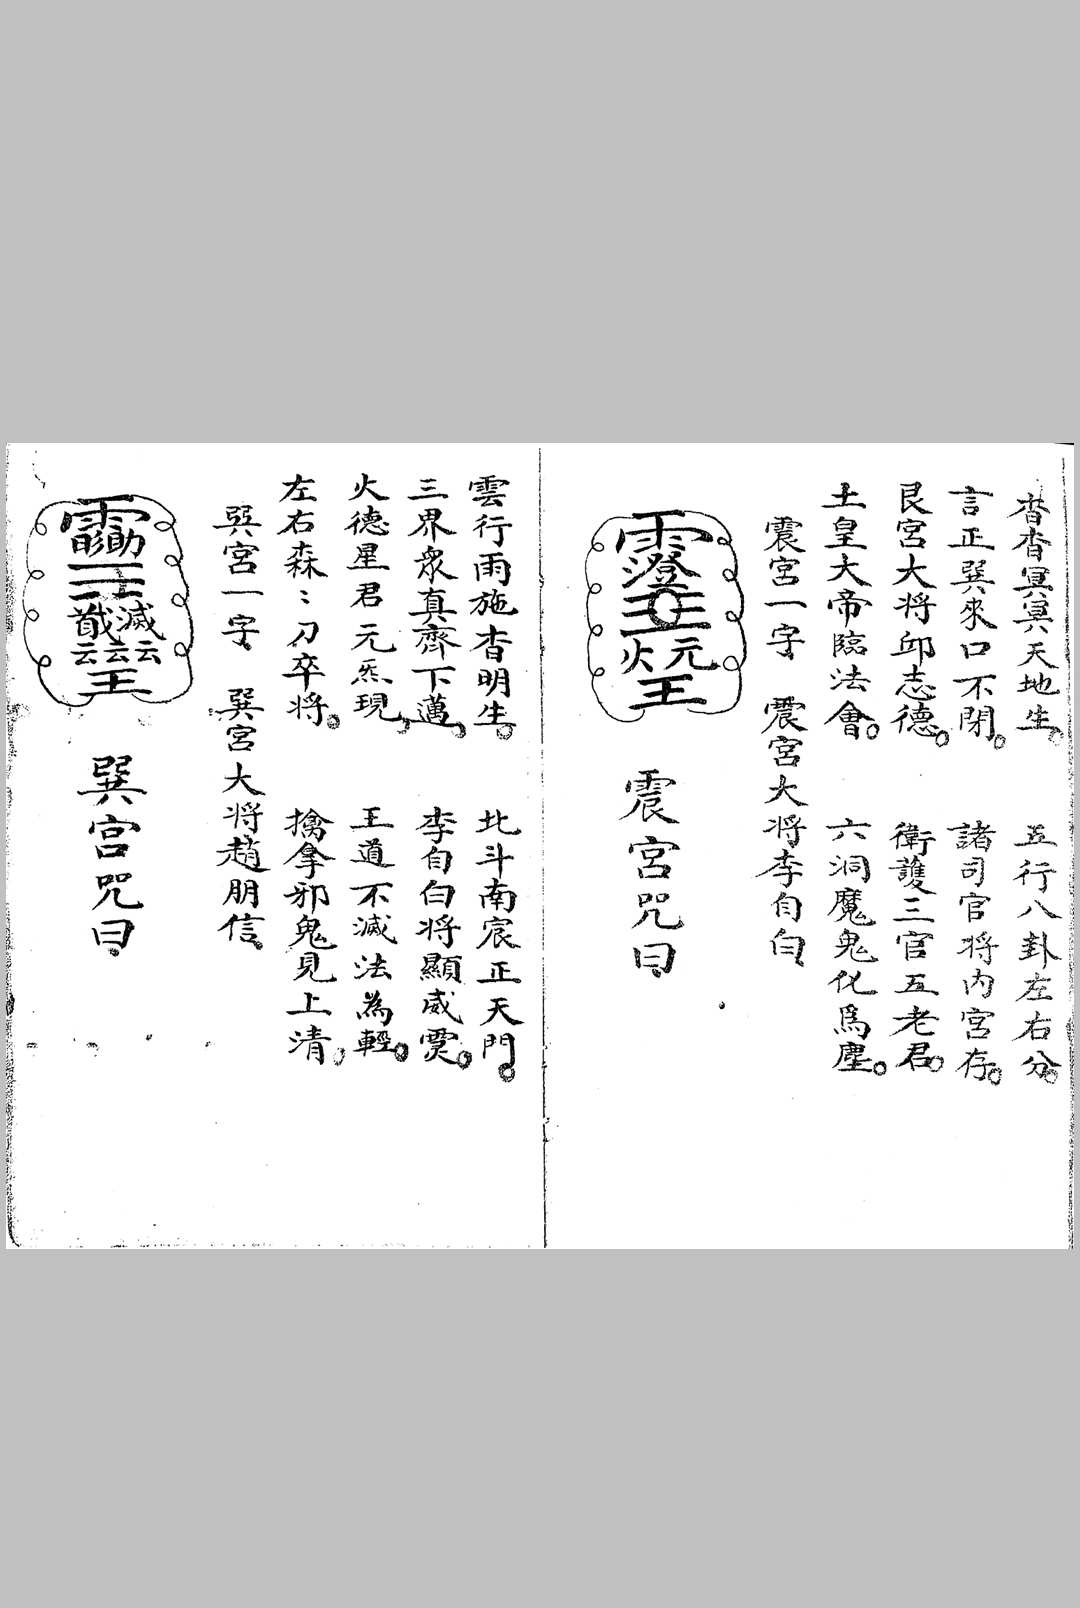 杳杳冥冥天地生。 五行八卦左右分。
言正巽來口不閉。 諸司官將內宮存。
艮宮大将邱志德。 衛護三官五老君。
土皇大帝臨法會。 六洞魔鬼化為塵。
震宮一字 震宮大将李自白
震宮咒曰
雲行雨施杳明生。 北斗南宸正天門。
三界衆真齊下邁。 李自白将顯威霛。
火德星君元炁現。 王道不滅法為輕。
左右森〻刀卒将。 擒拿邪鬼見上清。
巽宮一字 巽宮大将趙朋信
巽宮咒曰